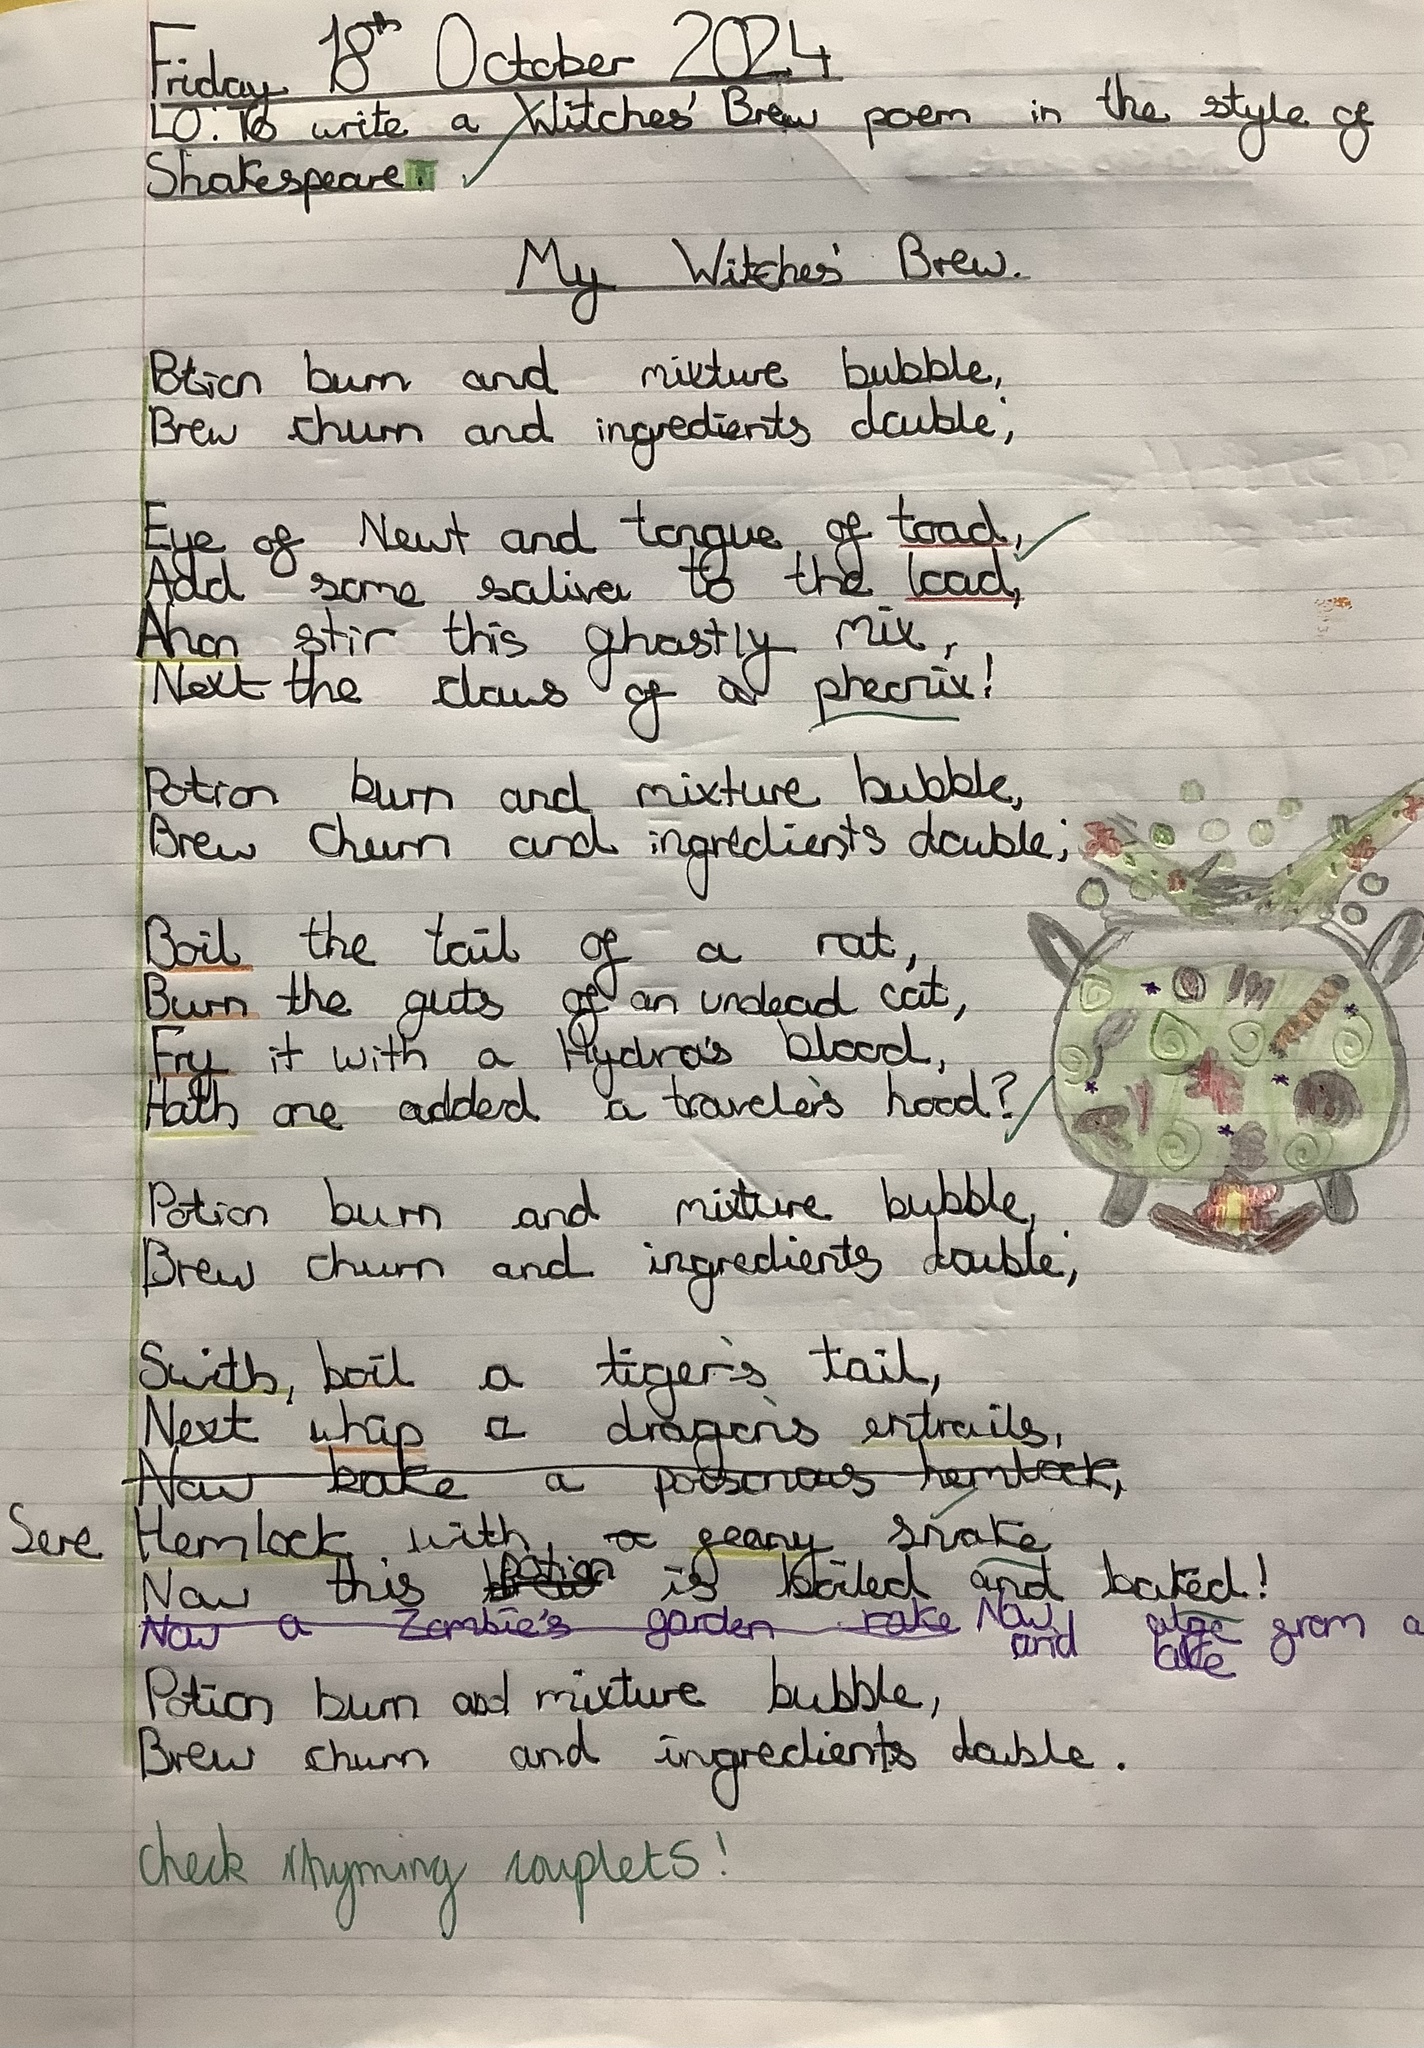 Friday 18th October 2024
LO: To write a Witches' Brew poem in the style of
Shakespeare.
My Witches' Brew.
Potion burn and mixture bubble,
Brew churn and ingredients double;
Eye of Newt and tongue of toad,
Add some saliva to the load,
Anon stir this ghastly mix,
Next the claws of a pheonix!
Potion burn and mixture bubble,
Brew churn and ingredients double;
Boil the tail of a rat,
Burn the guts of an undead cat,
Fry it with a Hydra's blood,
Hath one added a traveler's hood?
Potion burn and mixture bubble,
Brew churn and ingredients double;
Swith, boil a tiger's tail,
Next whip a dragon's entrails,
Now bake a poisonous hemlock,
Sere Hemlock with a geany snake
Now this potion is boiled and baked!
Now a Zombie's garden rake Now and alge from a lake
Potion burn and mixture bubble,
Brew churn and ingredients double.
check rhyming couplets!